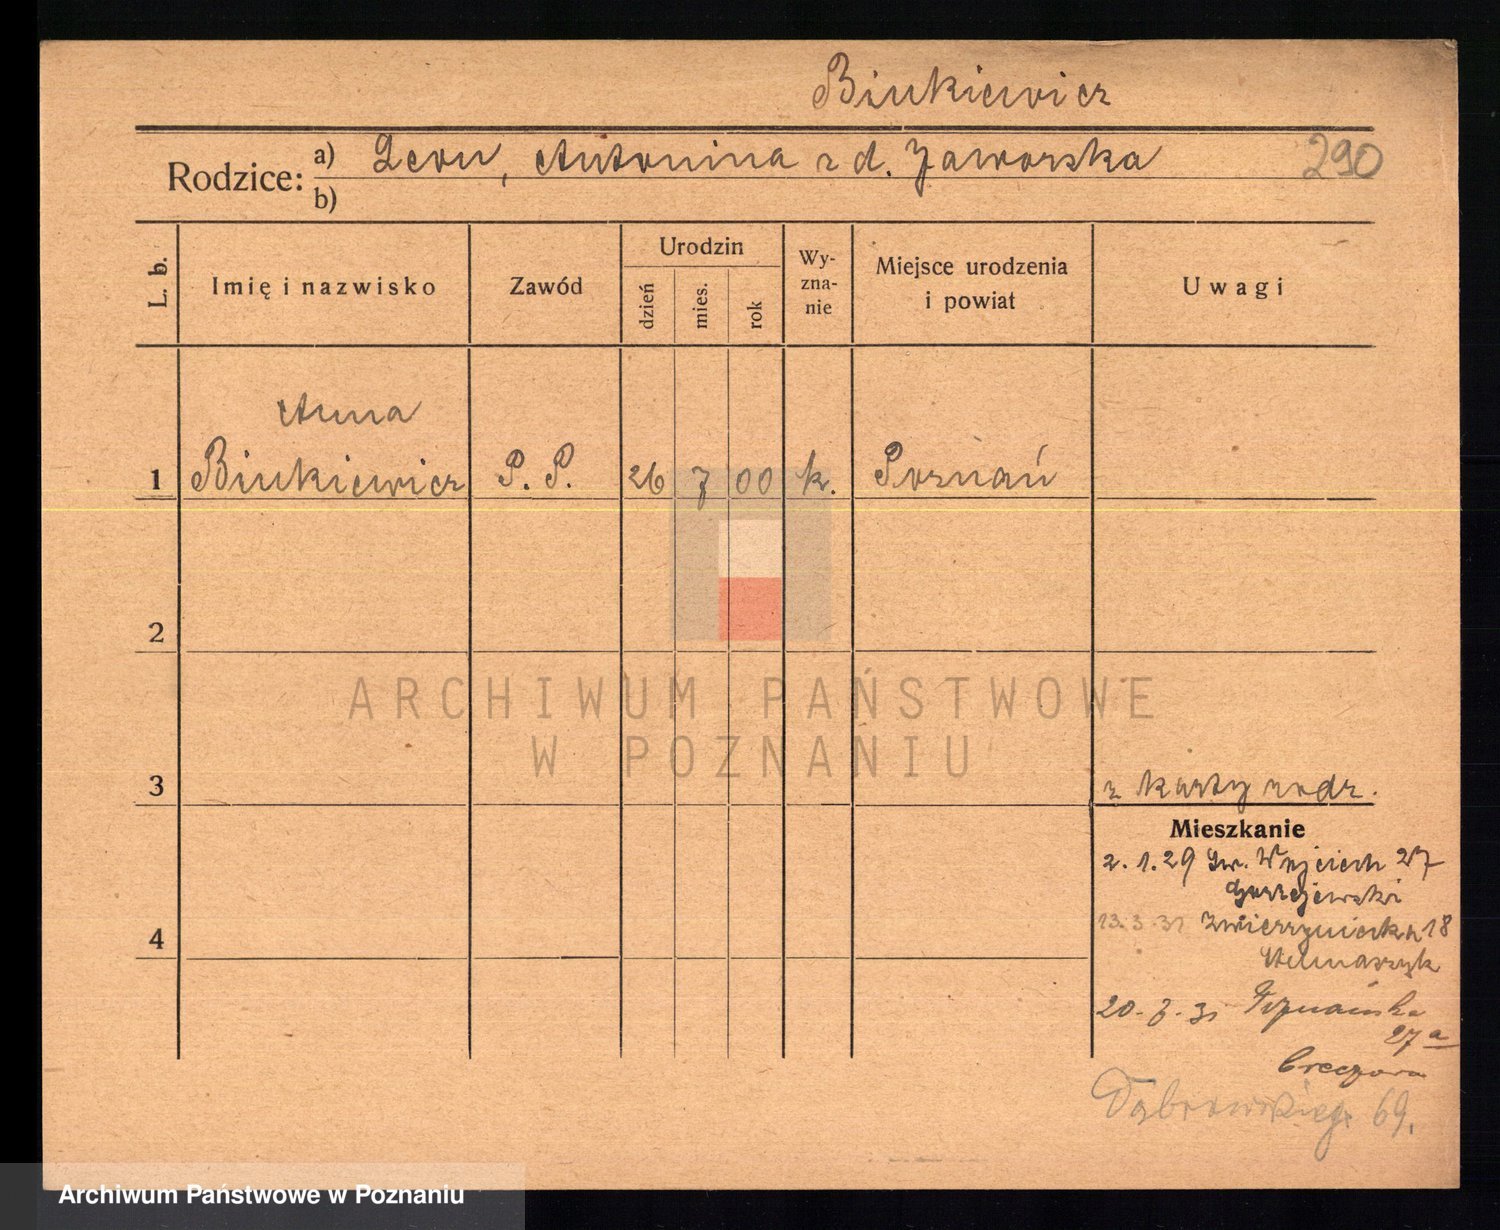 Binkiewicz
Rodzice: a) Leon, Antonina z d. Jaworska 290
b)
L. b. Imię i nazwisko Zawód Urodzin dzień mies. rok Wy-zna-nie Miejsce urodzenia i powiat Uwagi
Anna
1 Binkiewicz P. P. 26 7 00 k. Poznań
2
ARCHIWUM PAŃSTWOWE
W POZNANIU
3 z karty rodz.
Mieszkanie
2.1.29 Św. Wojciech 27
13.3.31 Zwierzyniecka 18
4
20.7.31 Poznańska
27a
Dąbrowskiego 69.
Archiwum Państwowe w Poznaniu